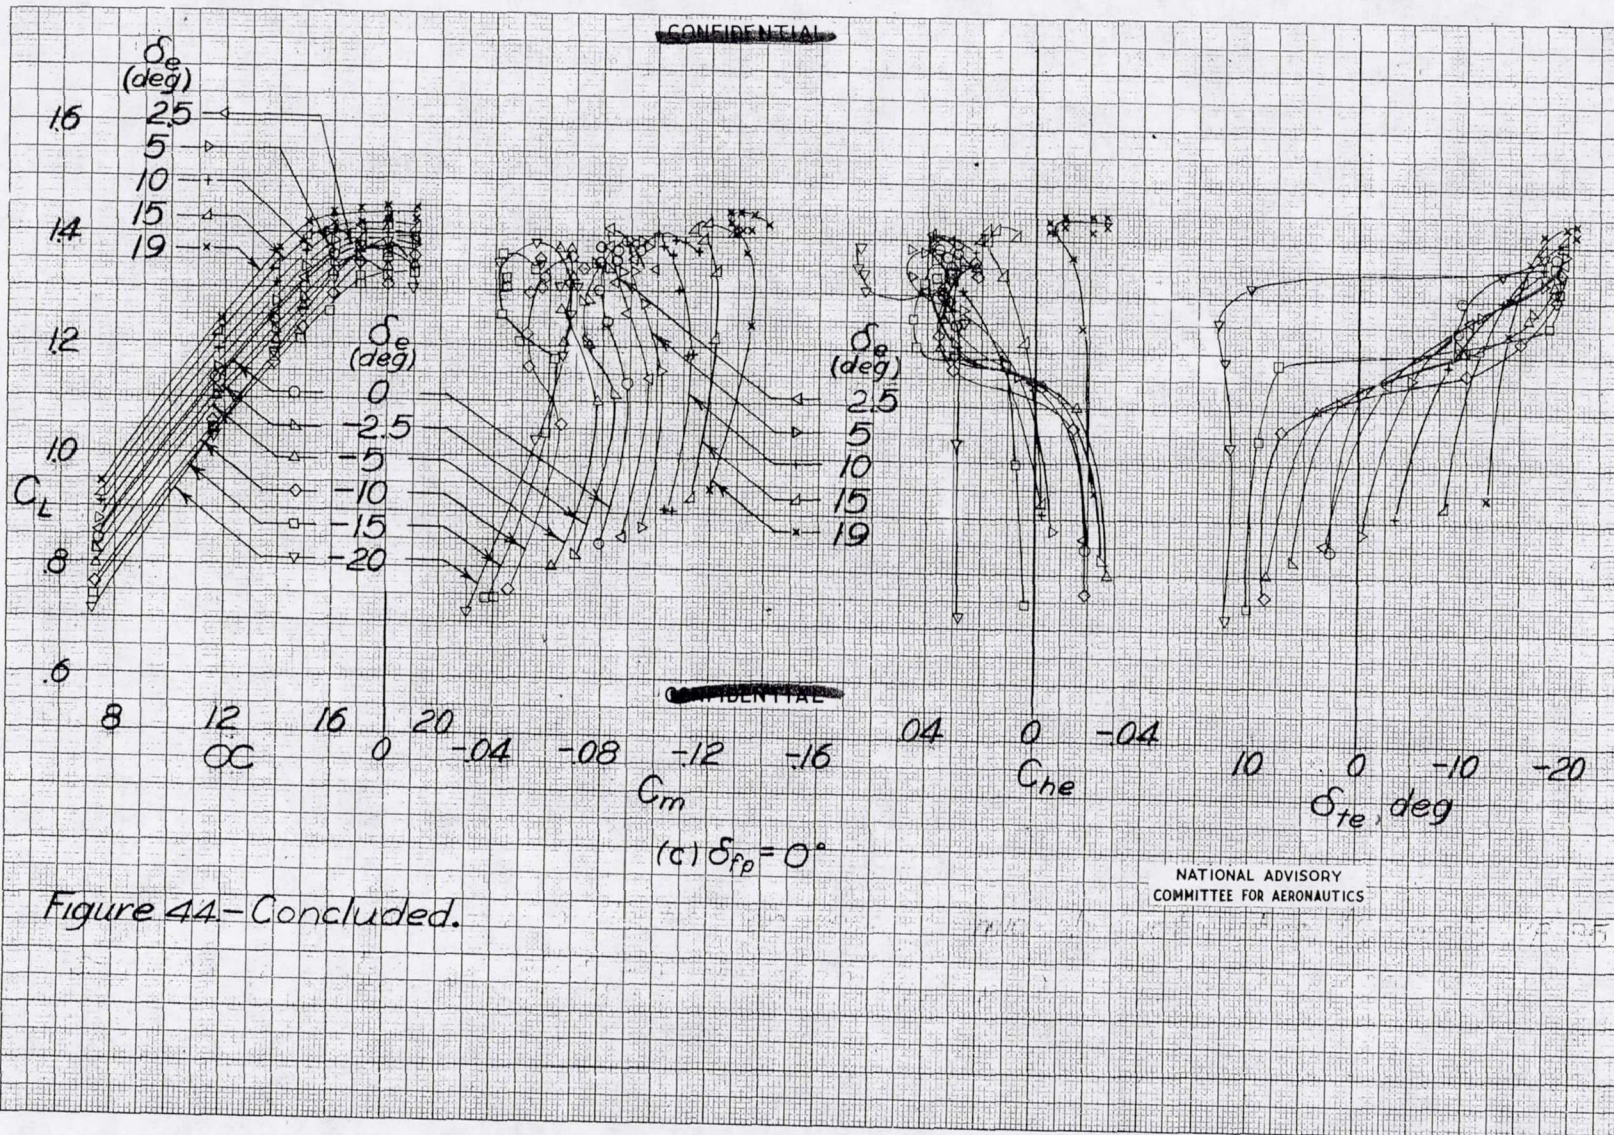 CONFIDENTIAL
δe
(deg)
2.5
5
10
15
19
1.6
1.4
1.2
1.0
CL
.8
.6
δe
(deg)
0
-2.5
-5
-10
-15
-20
δe
(deg)
2.5
5
10
15
19
CONFIDENTIAL
8 12 16 20
α
0 -.04 -.08 -.12 -.16
Cm
.04 0 -.04
Che
10 0 -10 -20
δte, deg
(c) δfp = 0°
NATIONAL ADVISORY
COMMITTEE FOR AERONAUTICS
Figure 44.- Concluded.